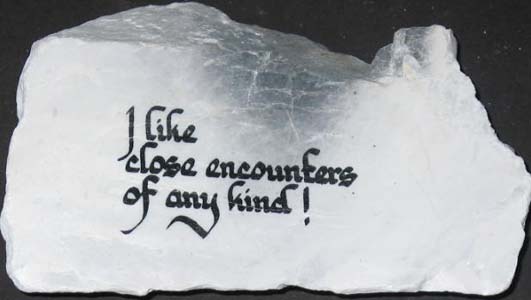 I like
close encounters
of any kind !